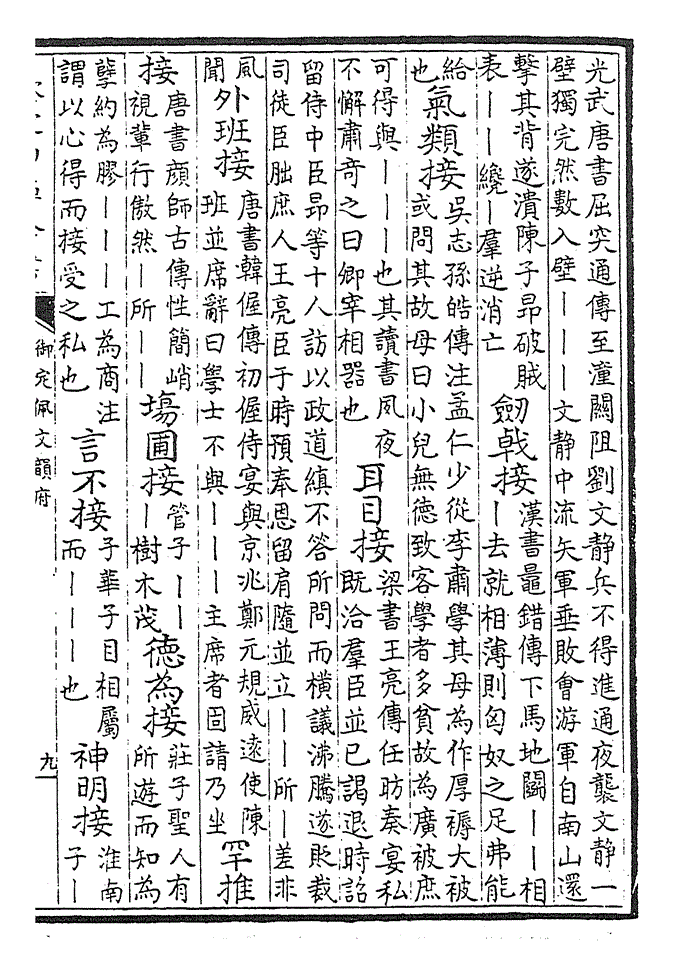 光武唐書屈突通傳至潼關阻劉文静兵不得進通夜襲文静一
壁獨完然數入壁｜｜｜文静中流矢軍垂敗會游軍自南山還
擊其背遂潰陳子昂破賊
表｜｜纔｜羣逆消亡
劒戟接
漢書鼂錯傳下馬地鬬｜｜相
｜去就相薄則匈奴之足弗能
給
也
氣類接
吳志孫皓傳注孟仁少從李肅學其母為作厚褥大被
或問其故母曰小兒無德致客學者多貧故為廣被庶
可得與｜｜｜也其讀書夙夜
不懈肅奇之曰卿宰相器也
耳目接
梁書王亮傳任昉奏宴私
既洽羣臣並已謁退時詔
留侍中臣昂等十人訪以政道縝不答所問而橫議沸騰遂貶裁
司徒臣朏庶人王亮臣于時預奉恩留肩隨並立｜｜所｜差非
風
聞
外班接
唐書韓偓傳初偓侍宴與京兆鄭元規威遠使陳
班並席辭曰學士不與｜｜｜主席者固請乃坐
罕推
接
唐書顔師古傳性簡峭
視輩行傲然｜所｜｜
塲圃接
管子｜｜
｜樹木茂
德為接
莊子聖人有
所遊而知為
孽約為膠｜｜｜工為商注
謂以心得而接受之私也
言不接
子華子目相屬
而｜｜｜也
神明接
淮南
子｜
御定佩文韻府
九